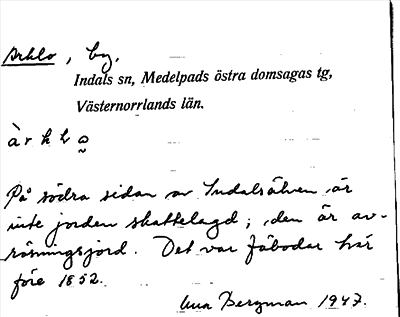 Arklo, by.
Indals sn, Medelpads östra domsagas tg,
Västernorrlands län.
àrklo̰
På södra sidan av Indalsälven är
inte jorden skattelagd; den är av-
rösningsjord. Det var fäbodar här
före 1852.
Bergman 1947.